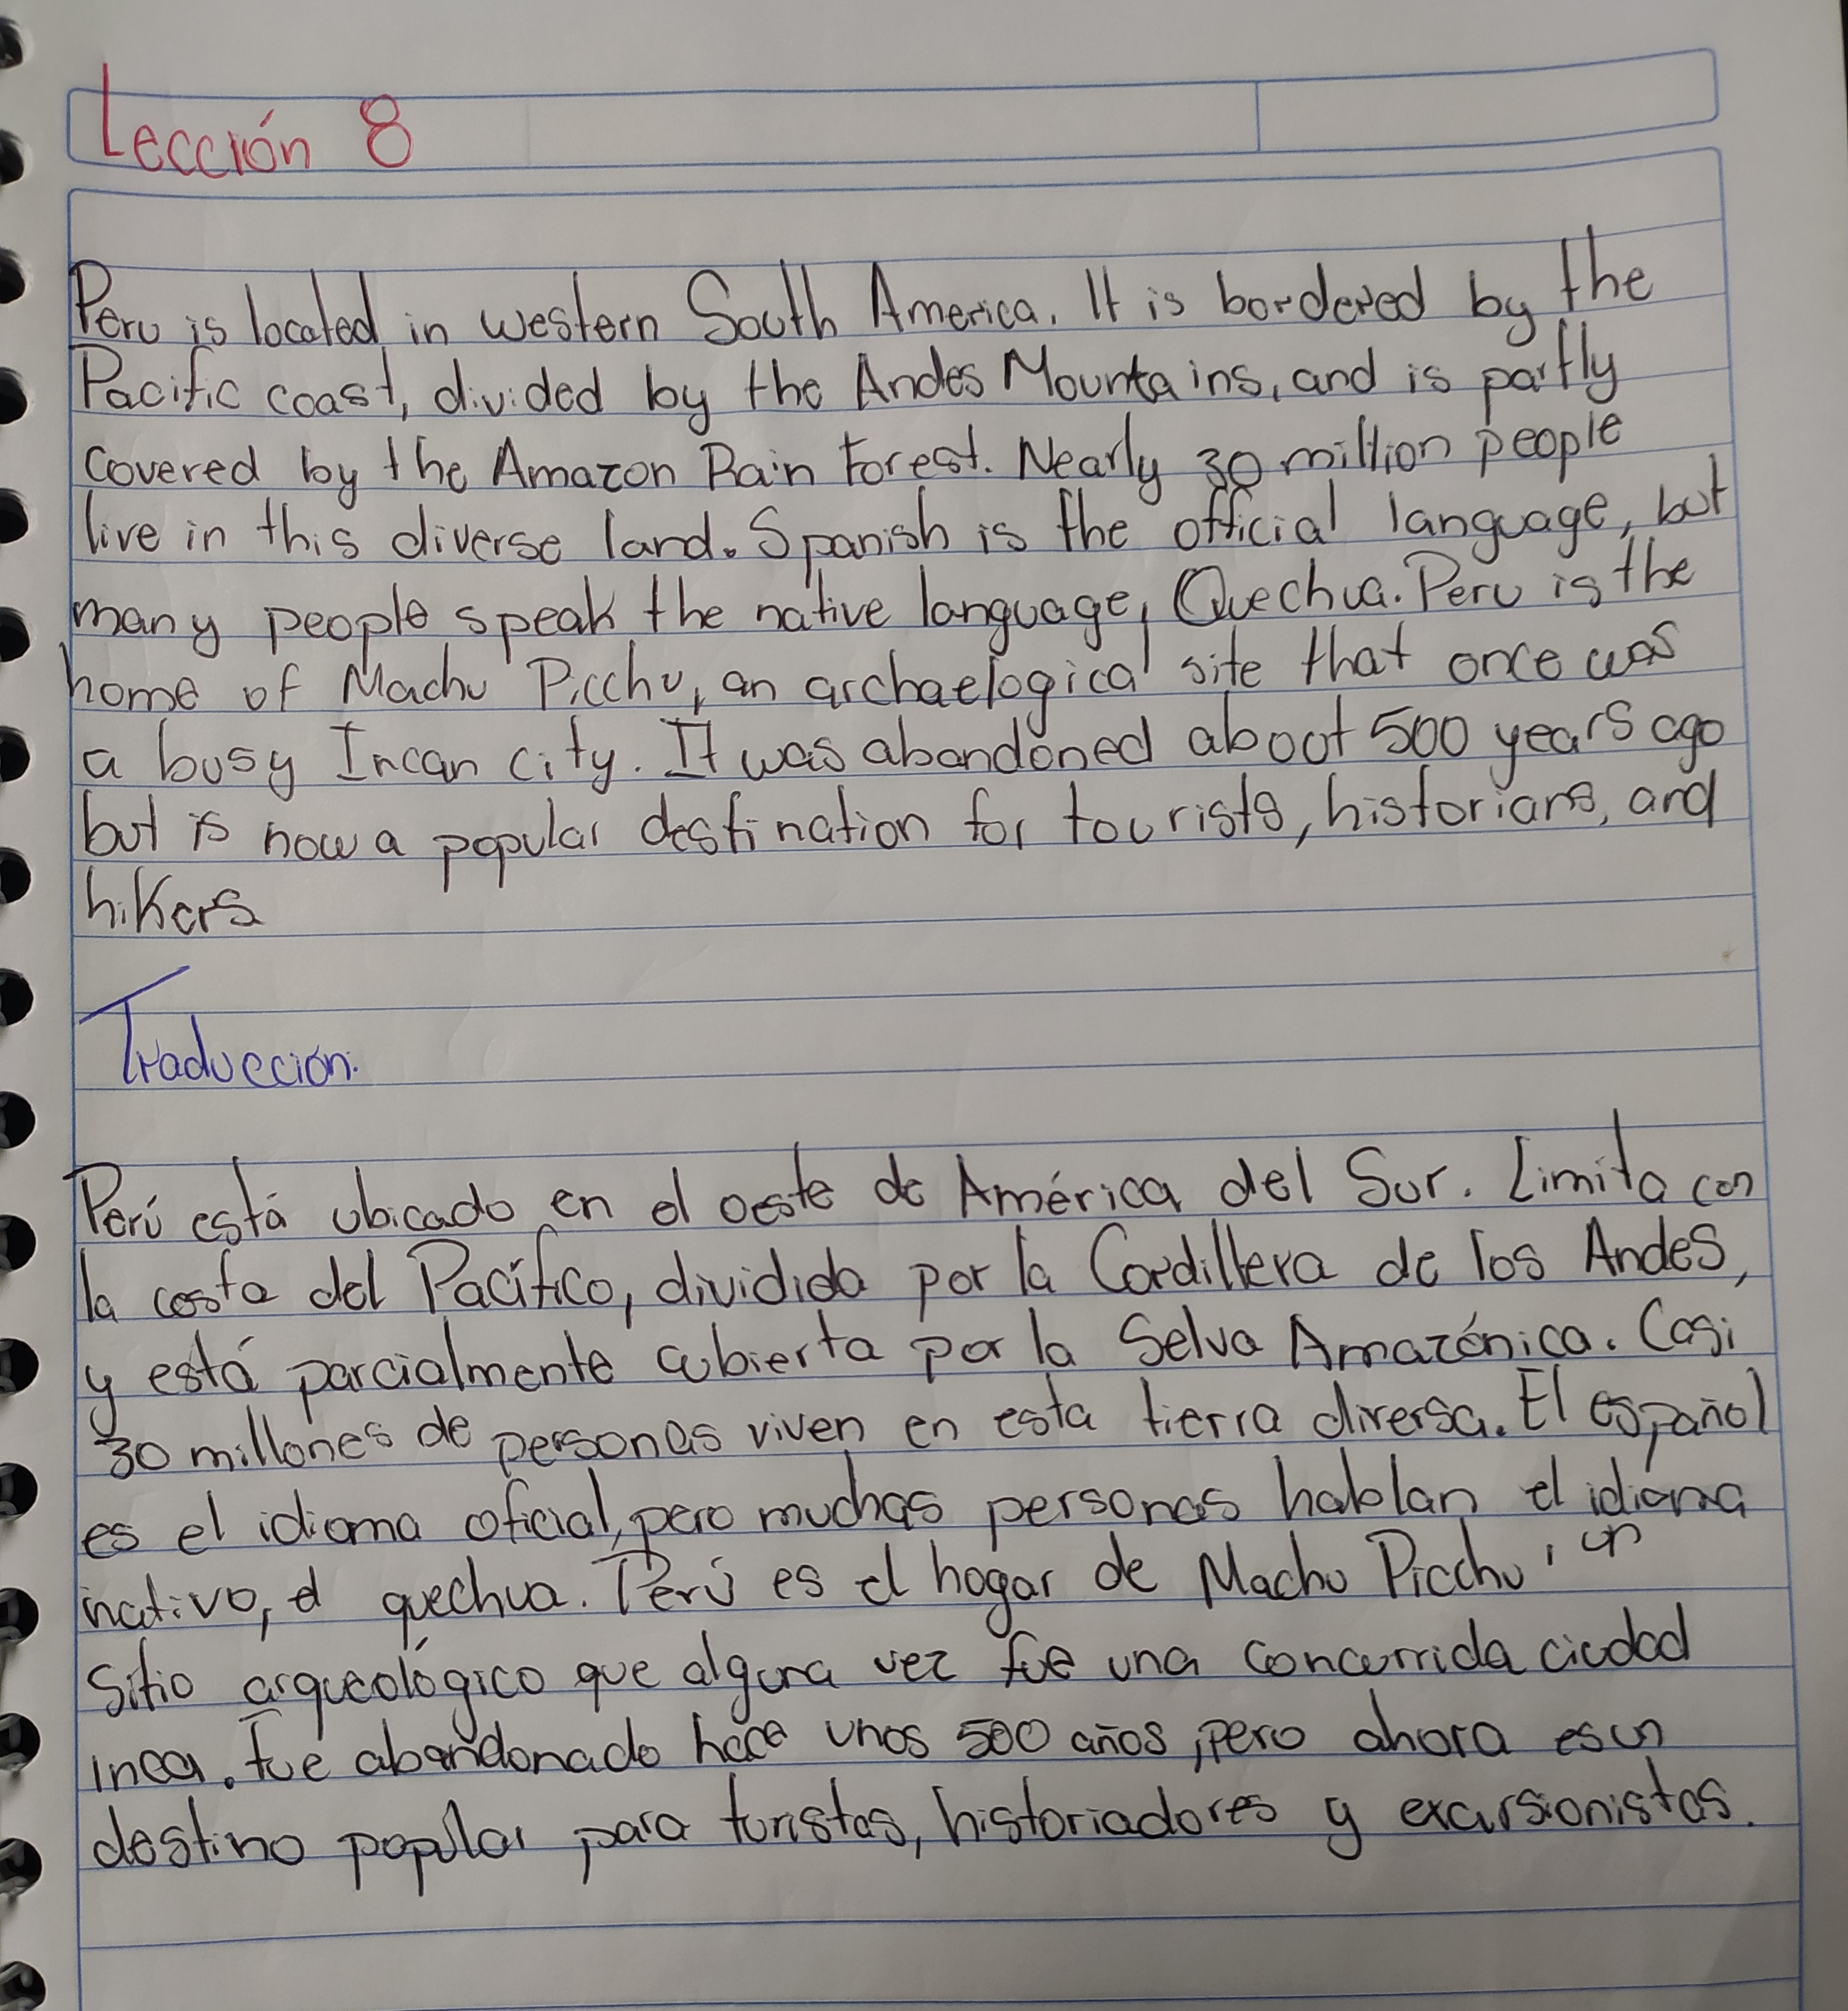 Lección 8
Peru is located in western South America. It is bordered by the
Pacific coast, divided by the Andes Mountains, and is partly
covered by the Amazon Rain Forest. Nearly 30 million people
live in this diverse land. Spanish is the official language, but
many people speak the native language, Quechua. Peru is the
home of Machu Picchu, an archaelogical site that once was
a busy Incan city. It was abandoned about 500 years ago
but is now a popular destination for tourists, historians, and
hikers
Traducción.
Perú está ubicado en el oeste de América del Sur. Limita con
la costa del Pacífico, dividida por la Cordillera de los Andes,
y está parcialmente cubierta por la Selva Amazónica. Casi
30 millones de personas viven en esta tierra diversa. El español
es el idioma oficial, pero muchas personas hablan el idioma
nativo, el quechua. Perú es el hogar de Machu Picchu, un
Sitio arqueológico que alguna vez fue una concurrida ciudad
inca. fue abandonado hace unos 500 años, pero ahora es un
destino popular para turistas, historiadores y excursionistas.